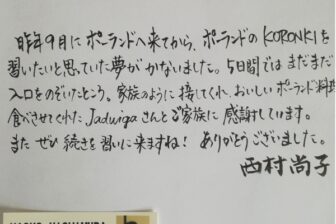 昨年9月にポーランドへ来てから、ポーランドのKORONKIを
習いたいと思っていた夢がかないました。5日間ではまだまだ
入口をのぞいたところ。家族のように接してくれ、おいしいポーランド料理
食べさせてくれた Jadwigaさんとご家族に感謝しています。
また ぜひ 続きを習いに来ますね! ありがとうございました。
西村尚子